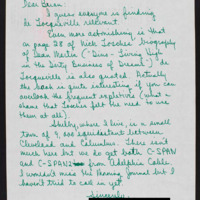 Dear Brian:
I guess everyone is finding
de Tocqueville relevant.
Even more astonishing is that
on page 28 of Nick Tosches' biography
of Dean Martin (Dino: Living High
in the Dirty Business of Dreams) de
Tocqueville is also quoted. Actually
the book is quite interesting if you can
overlook the frequent expletives (what a
shame that Tosches felt the need to use
them at all).
Shelby, where I live, is a small
town of 9,000 equidistant between
Cleveland and Columbus. There isn't
much here but we do get both C-SPAN
and C-SPAN2 from Adelphia Cable.
I wouldn't miss the Morning Journal but I
haven't tried to call in yet.
Sincerely,